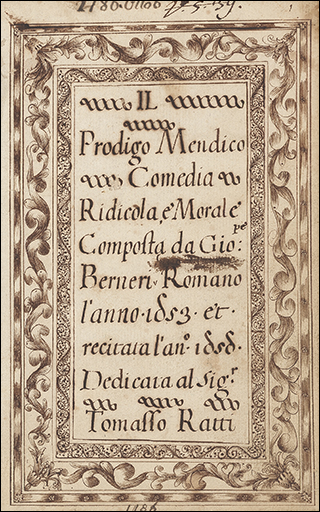 J. 5. 39.
1
IL
Prodigo Mendico
Comedia
Ridicola, e Morale
Composta da Gio: pe
Berneri Romano
l'anno 1653 et
recitata l'anº 1656.
Dedicata al Sigr
Tomasso Ratti
1186